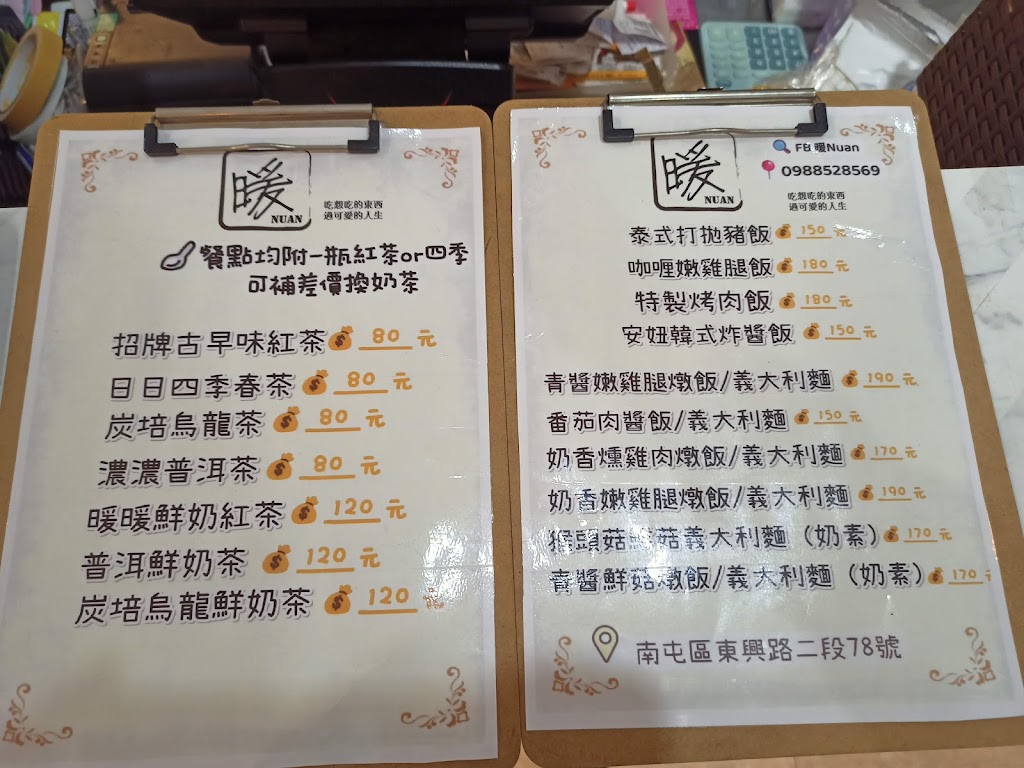 暖
NUAN
吃想吃的東西
過可愛的人生
餐點均附一瓶紅茶or四季
可補差價換奶茶
招牌古早味紅茶 80 元
日日四季春茶 80 元
炭培烏龍茶 80 元
濃濃普洱茶 80 元
暖暖鮮奶紅茶 120 元
普洱鮮奶茶 120 元
炭培烏龍鮮奶茶 120 元
暖
NUAN
FB 暖Nuan
0988528569
吃想吃的東西
過可愛的人生
泰式打拋豬飯 150 元
咖喱嫩雞腿飯 180 元
特製烤肉飯 180 元
安妞韓式炸醬飯 150 元
青醬嫩雞腿燉飯/義大利麵 190 元
番茄肉醬飯/義大利麵 150 元
奶香燻雞肉燉飯/義大利麵 170 元
奶香嫩雞腿燉飯/義大利麵 190 元
猴頭菇鮮菇義大利麵（奶素） 170 元
青醬鮮菇燉飯/義大利麵（奶素） 170
南屯區東興路二段78號